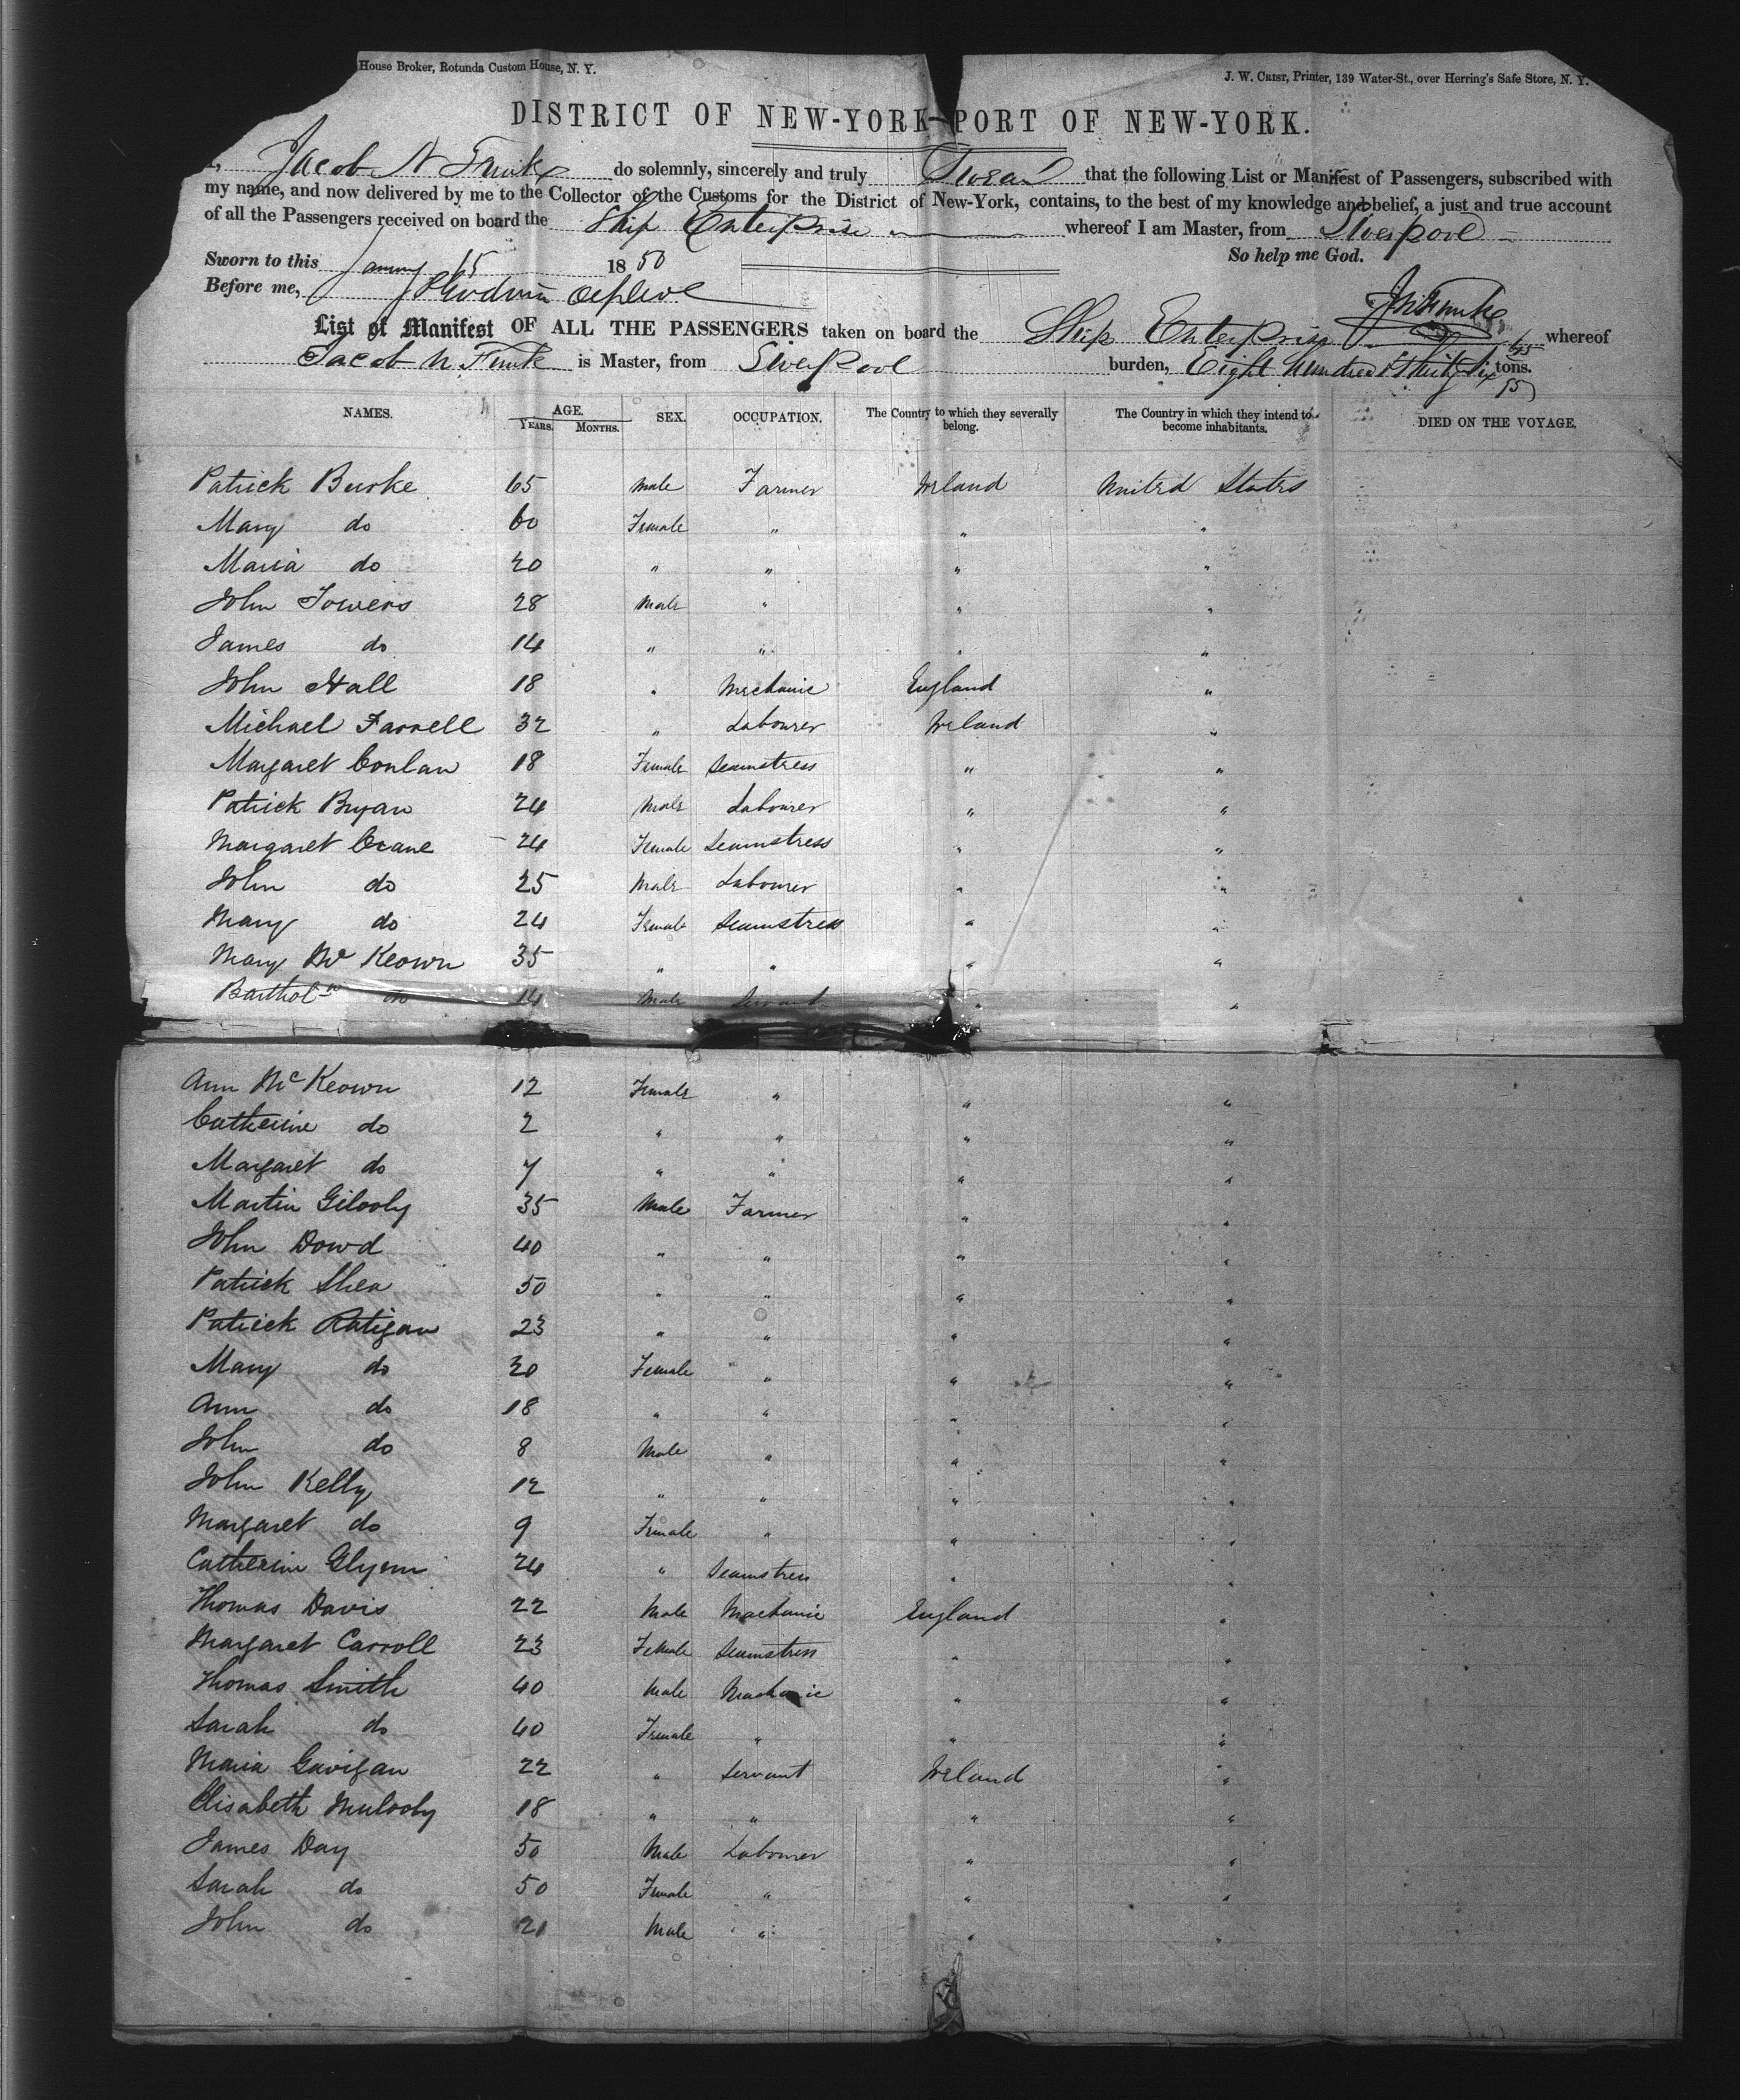 House Broker, Rotunda Custom House, N. Y.
J. W. Crist, Printer, 139 Water-St., over Herring's Safe Store, N. Y.
DISTRICT OF NEW-YORK—PORT OF NEW-YORK.
I, Jacob N Funk do solemnly, sincerely and truly Swear that the following List or Manifest of Passengers, subscribed with
my name, and now delivered by me to the Collector of the Customs for the District of New-York, contains, to the best of my knowledge and belief, a just and true account
of all the Passengers received on board the Ship Enterprise whereof I am Master, from Liverpool
Sworn to this January 15 1850 So help me God.
Before me,
List of Manifest OF ALL THE PASSENGERS taken on board the Ship Enterprise whereof
Jacob N Funk is Master, from Liverpool burden, Eight Hundred & Thirty Six tons.
NAMES. AGE. SEX. OCCUPATION. The Country to which they severally belong. The Country in which they intend to become inhabitants. DIED ON THE VOYAGE.
YEARS. MONTHS.
Patrick Burke 65 Male Farmer Ireland United States
Mary do 60 Female " " "
Maria do 20 " " " "
John Towers 28 Male " " "
James do 14 " " " "
John Hall 18 " Mechanic England "
Michael Farrell 32 " Labourer Ireland "
Margaret Conlan 18 Female Seamstress " "
Patrick Bryan 24 Male Labourer " "
Margaret Crane 24 Female Seamstress " "
John do 25 Male Labourer " "
Mary do 24 Female Seamstress " "
Mary Mc Keown 35 " " " "
Bartholw do 14 Male Servant " "
Ann McKeown 12 Female " " "
Catherine do 2 " " " "
Margaret do 7 " " " "
Martin Gilooly 35 Male Farmer " "
John Dowd 40 " " " "
Patrick Shea 50 " " " "
Patrick Ratigan 23 " " " "
Mary do 20 Female " " "
Ann do 18 " " " "
John do 8 Male " " "
John Kelly 12 " " " "
Margaret do 9 Female " " "
Catherine Glynn 24 " Seamstress " "
Thomas Davis 22 Male Mechanic England "
Margaret Carroll 23 Female Seamstress " "
Thomas Smith 40 Male Mechanic " "
Sarah do 40 Female " " "
Maria Gavigan 22 " Servant Ireland "
Elisabeth Mulooly 18 " " " "
James Day 50 Male Labourer " "
Sarah do 50 Female " " "
John do 21 Male " " "